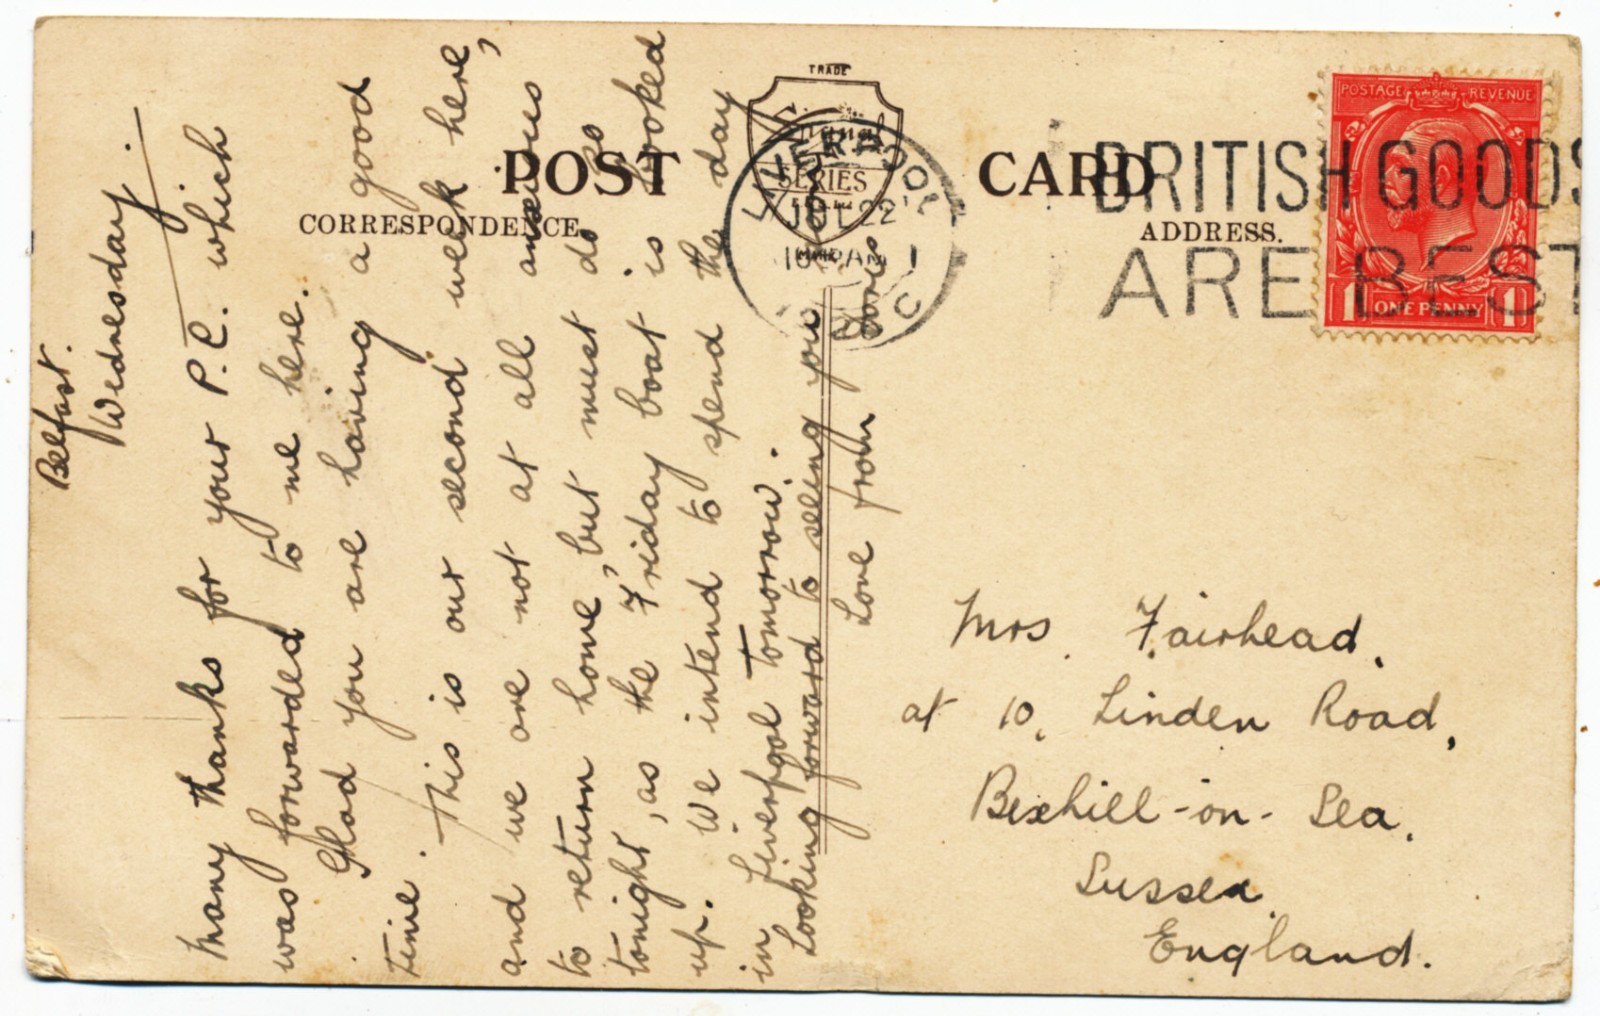 POST CARD
CORRESPONDENCE.
ADDRESS.
TRADE
Signal
SERIES
LIVERPOOL
22
1
BRITISH GOODS
ARE BEST
POSTAGE REVENUE
1 ONE PENNY 1
Belfast.
Wednesday.
Many thanks for your P.C. which
was forwarded to me here.
Glad you are having a good
time. This is our second week here,
and we are not at all anxious
to return home, but must do so
tonight, as the Friday boat is booked
up. We intend to spend the day
in Liverpool tomorrow.
Looking forward to seeing you
Love from
Doris
Mrs. Fairhead,
at 10, Linden Road,
Bexhill-on-Sea,
Sussex,
England.